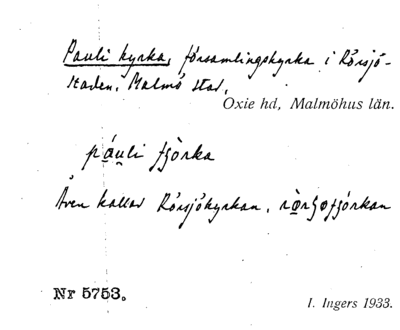 Pauli kyrka, församlingskyrka i Rörsjö-
staden, Malmö stad,
Oxie hd, Malmöhus län.
páu̯li fʒòrka
Även kallad Rörsjökyrkan.
Nr 5753.
I. Ingers 1933.